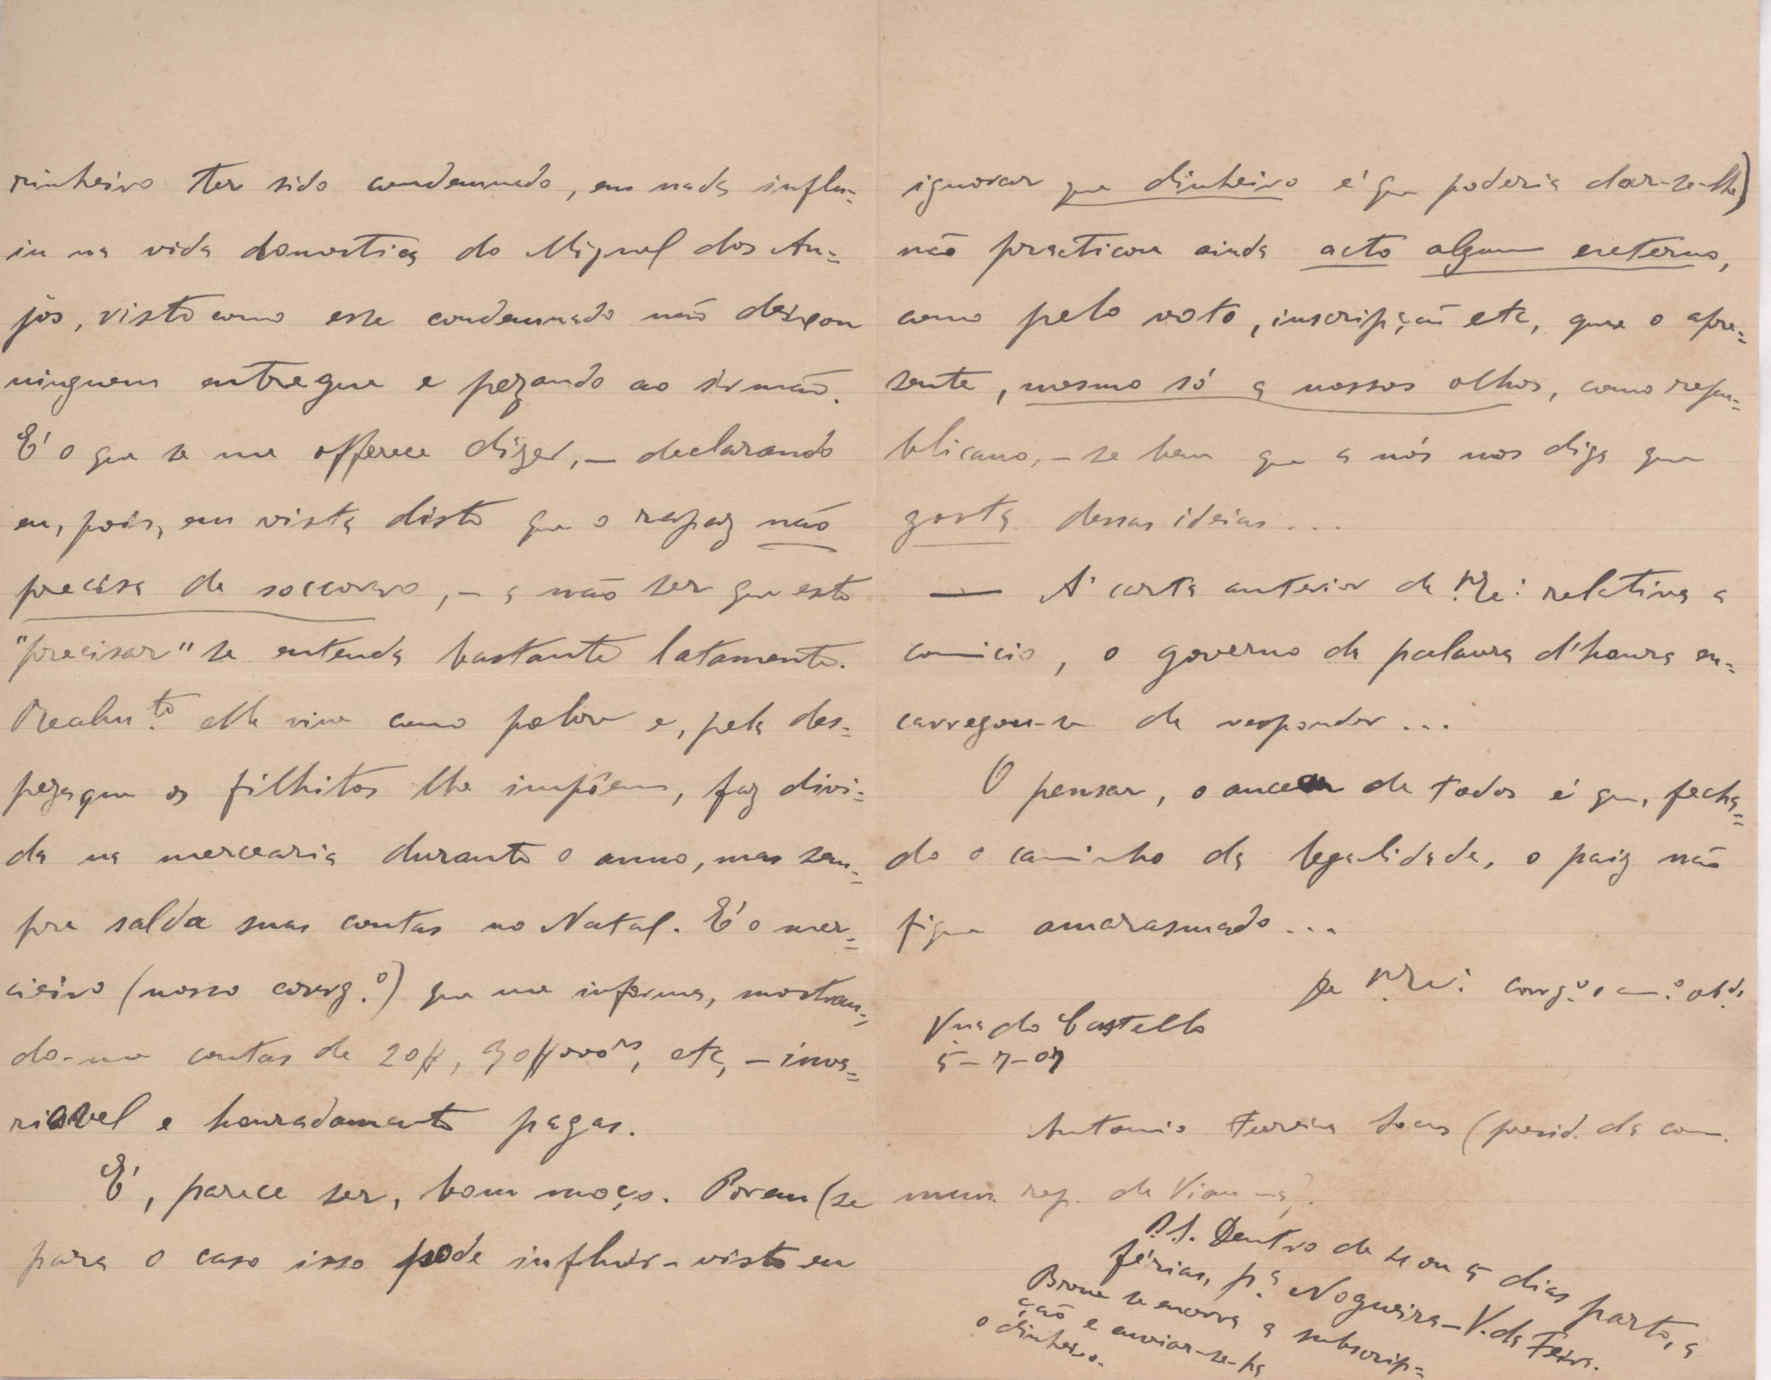 rinheiro ter sido condemnado, em nada influ=
iu na vida domestica do Miguel dos An=
jos, visto como esse condemnado não deixou
ninguem entregue e pezando ao irmão.
É o que se me offerece dizer, — declarando
eu, pois, em vista disto que o rapaz não
precisa de soccorro, — a não ser que esto
"precisar" se entenda bastante latamente.
Realm.te elle vive como pobre e, pela des=
peza que os filhitos lhe impõem, faz divi=
da na mercearia durante o anno, mas sem=
pre salda suas contas no Natal. É o mer=
cieiro (nosso correlg.o) que me informa, mostran=
do-me contas de 20$, 30$000rs, etc, — inva=
riavel e honradamente pagas.
É, parece ser, bom moço. Porem (se
para o caso isso pode influir — visto eu
ignorar que dinheiro é que poderia dar-se-lhe)
não practicou ainda acto algum externo,
como pelo voto, inscripção etc, que o apre=
sente, mesmo só a nossos olhos, como repu=
blicano, — se bem que a nós nos diga que
gosta dessas ideias...
— A' carta anterior de relativa a
comicio, o governo da palavra d'honra en=
carregou-se de responder...
O pensar, o ancear de todos é que, fecha=
do o caminho da legalidade, o paiz não
fique amarasmado...
De
Vna do Castello
5-7-07
Antonio Ferreira Soares (presid. da com.
mun. rep. de Vianna).
P.S. Dentro de 4 ou 5 dias parto, a
férias, p.a Nogueira — V. da Feira.
Breve se encerra a subscrip=
ção e enviar-se-ha
o dinheiro.